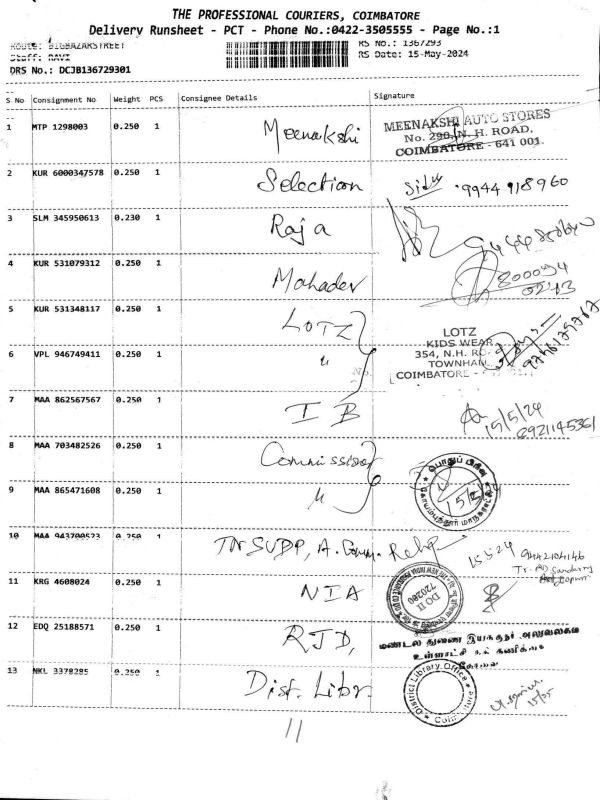 THE PROFESSIONAL COURIERS, COIMBATORE
Delivery Runsheet - PCT - Phone No.:0422-3505555 - Page No.:1
ROUTE: BIGBAZARSTREET
Staff: RAVI
DRS No.: DCJB136729301
RS No.: 1367293
RS Date: 15-May-2024
S No Consignment No Weight PCS Consignee Details Signature
1 MTP 1298003 0.250 1 Meenakshi
MEENAKSHI AUTO STORES
No. 290, N. H. ROAD,
COIMBATORE - 641 001.
2 KUR 6000347578 0.250 1 Selection 9944 118960
3 SLM 345950613 0.230 1 Raja
4 KUR 531079312 0.250 1 Mahadev
5 KUR 531348117 0.250 1 LOTZ
LOTZ
KIDS WEAR
354, N.H. RO
TOWNHALL
COIMBATORE -
6 VPL 946749411 0.250 1 "
7 MAA 862567567 0.250 1 I B 15/5/24
8 MAA 703482526 0.250 1 Commissioner
பொதுப் பிரிவு
9 MAA 865471608 0.250 1 "
10 MAA 943700523 0.250 1 TNSUDP, A. Comm. 15.5.24
11 KRG 4608024 0.250 1 NIA
DO II
720200
12 EDQ 25188571 0.250 1 RJD,
மண்டல துணை இயக்குநர் அலுவலகம்
உள்ளாட்சி நிதி தணிக்கை
கோவை
13 NKL 3378285 0.250 1 Dist. Libr.
District Library Office
Coimbatore
15/05
11